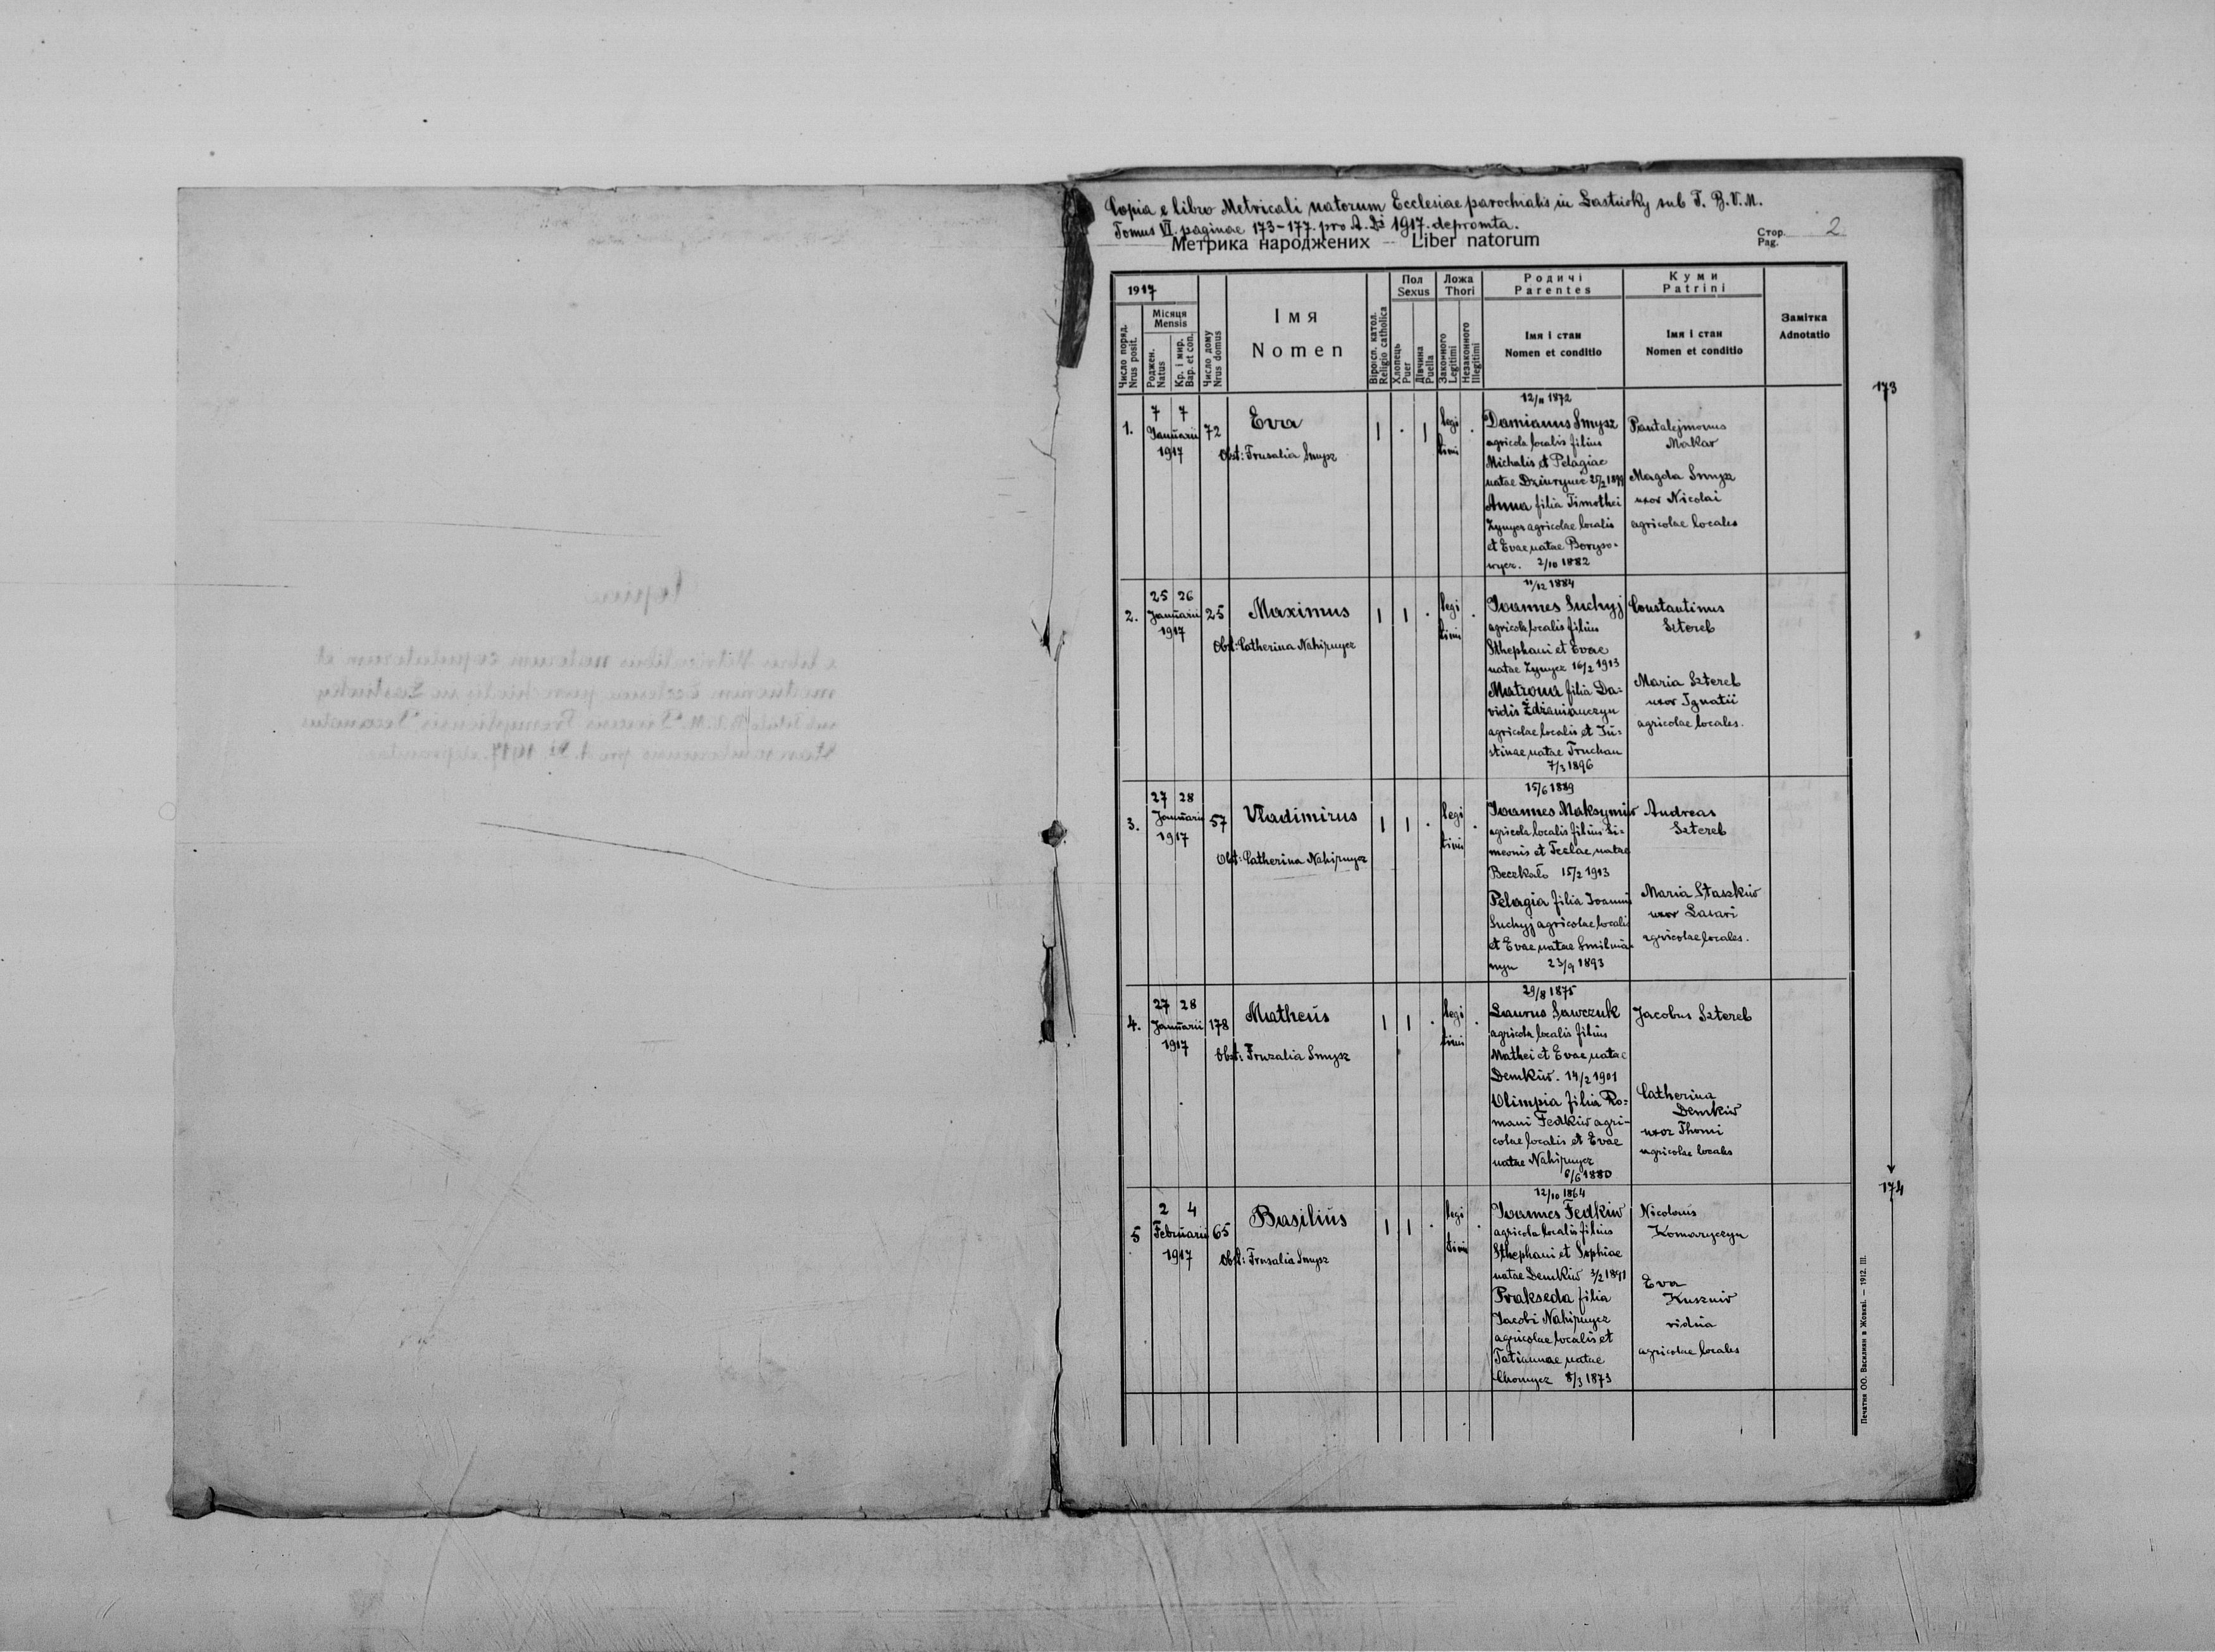 Copia e libro Metricali natorum Ecclesiae parochialis in Lastiwky sub T. B.V.M.
Tomus VI. paginae 173-177. pro A. Di 1917. depromta.
Метрика народжених — Liber natorum
Стор. 2
Pag.
1917
Число поряд.
Nrus posit.
Місяця
Mensis
Роджен.
Natus
Кр. і мир.
Bap. et con.
Число дому
Nrus domus
Імя
Nomen
Віроісп. катол.
Religio catholica
Пол
Sexus
Хлопець
Puer
Дївчина
Puella
Ложа
Thori
Законного
Legitimi
Незаконного
Illegitimi
Родичі
Parentes
Імя і стан
Nomen et conditio
Куми
Patrini
Імя і стан
Nomen et conditio
Замітка
Adnotatio
173
1.
7 7
Januarii
1917
72
Eva
Obst: Frusalia Smysz
1 . 1
legi
timi
.
12/11 1872
Damianus Smysz
agricola localis filius
Michalis et Pelagiae
natae Dziurynec 25/2 1899
Anna filia Timothei
Zynycz agricolae localis
et Evae natae Boryso-
wycz. 2/10 1882
Pantalejmonus
Makar
Magda Smysz
uxor Nicolai
agricolae locales
2.
25 26
Januarii
1917
25
Maximus
Obst: Catherina Nahirnycz
1 1 .
legi
timi
.
11/12 1884
Ioannes Suchyj
agricola localis filius
Sthephani et Evae
natae Zynycz 16/2 1913
Matrona filia Da-
vidis Zdzanianczyn
agricolae localis et Ju-
stinae natae Truchan
7/3 1896
Constantinus
Sztereb
Maria Sztereb
uxor Ignatii
agricolae locales.
3.
27 28
Januarii
1917
57
Vladimirus
Obst: Catherina Nahirnycz
1 1 .
legi
timi
.
15/6 1889
Ioannes Maksymiw
agricola localis filius Si-
meonis et Teclae natae
Beczkalo 15/2 1913
Pelagia filia Ioannis
Suchyj agricolae localis
et Evae natae Smilnia-
nyn 23/9 1893
Andreas
Sztereb
Maria Staszkiw
uxor Lasari
agricolae locales.
4.
27 28
Januarii
1917
178
Matheus
Obst: Fruzalia Smysz
1 1 .
legi
timi
.
29/8 1875
Laurus Sawczuk
agricola localis filius
Mathei et Evae natae
Demkiw. 14/2 1901
Olimpia filia Ro-
mani Fedkiw agri-
colae localis et Evae
natae Nahirnycz
6/6 1880
Jacobus Sztereb
Catherina
Demkiw
uxor Thomi
agricolae locales
174
5
2 4
Februarii
1917
65
Basilius
Obst: Frusalia Smysz
1 1 .
legi
timi
.
12/10 1864
Ioannes Fedkiw
agricola localis filius
Sthephani et Sophiae
natae Demkiw 3/2 1891
Prakseda filia
Jacobi Nahirnycz
agricolae localis et
Tatiannae natae
Chomycz 8/3 1873
Nicolaus
Komaryczyn
Eva
Kuszniw
vidua
agricolae locales
Печатня ОО. Василиян в Жовкві. — 1912. III.